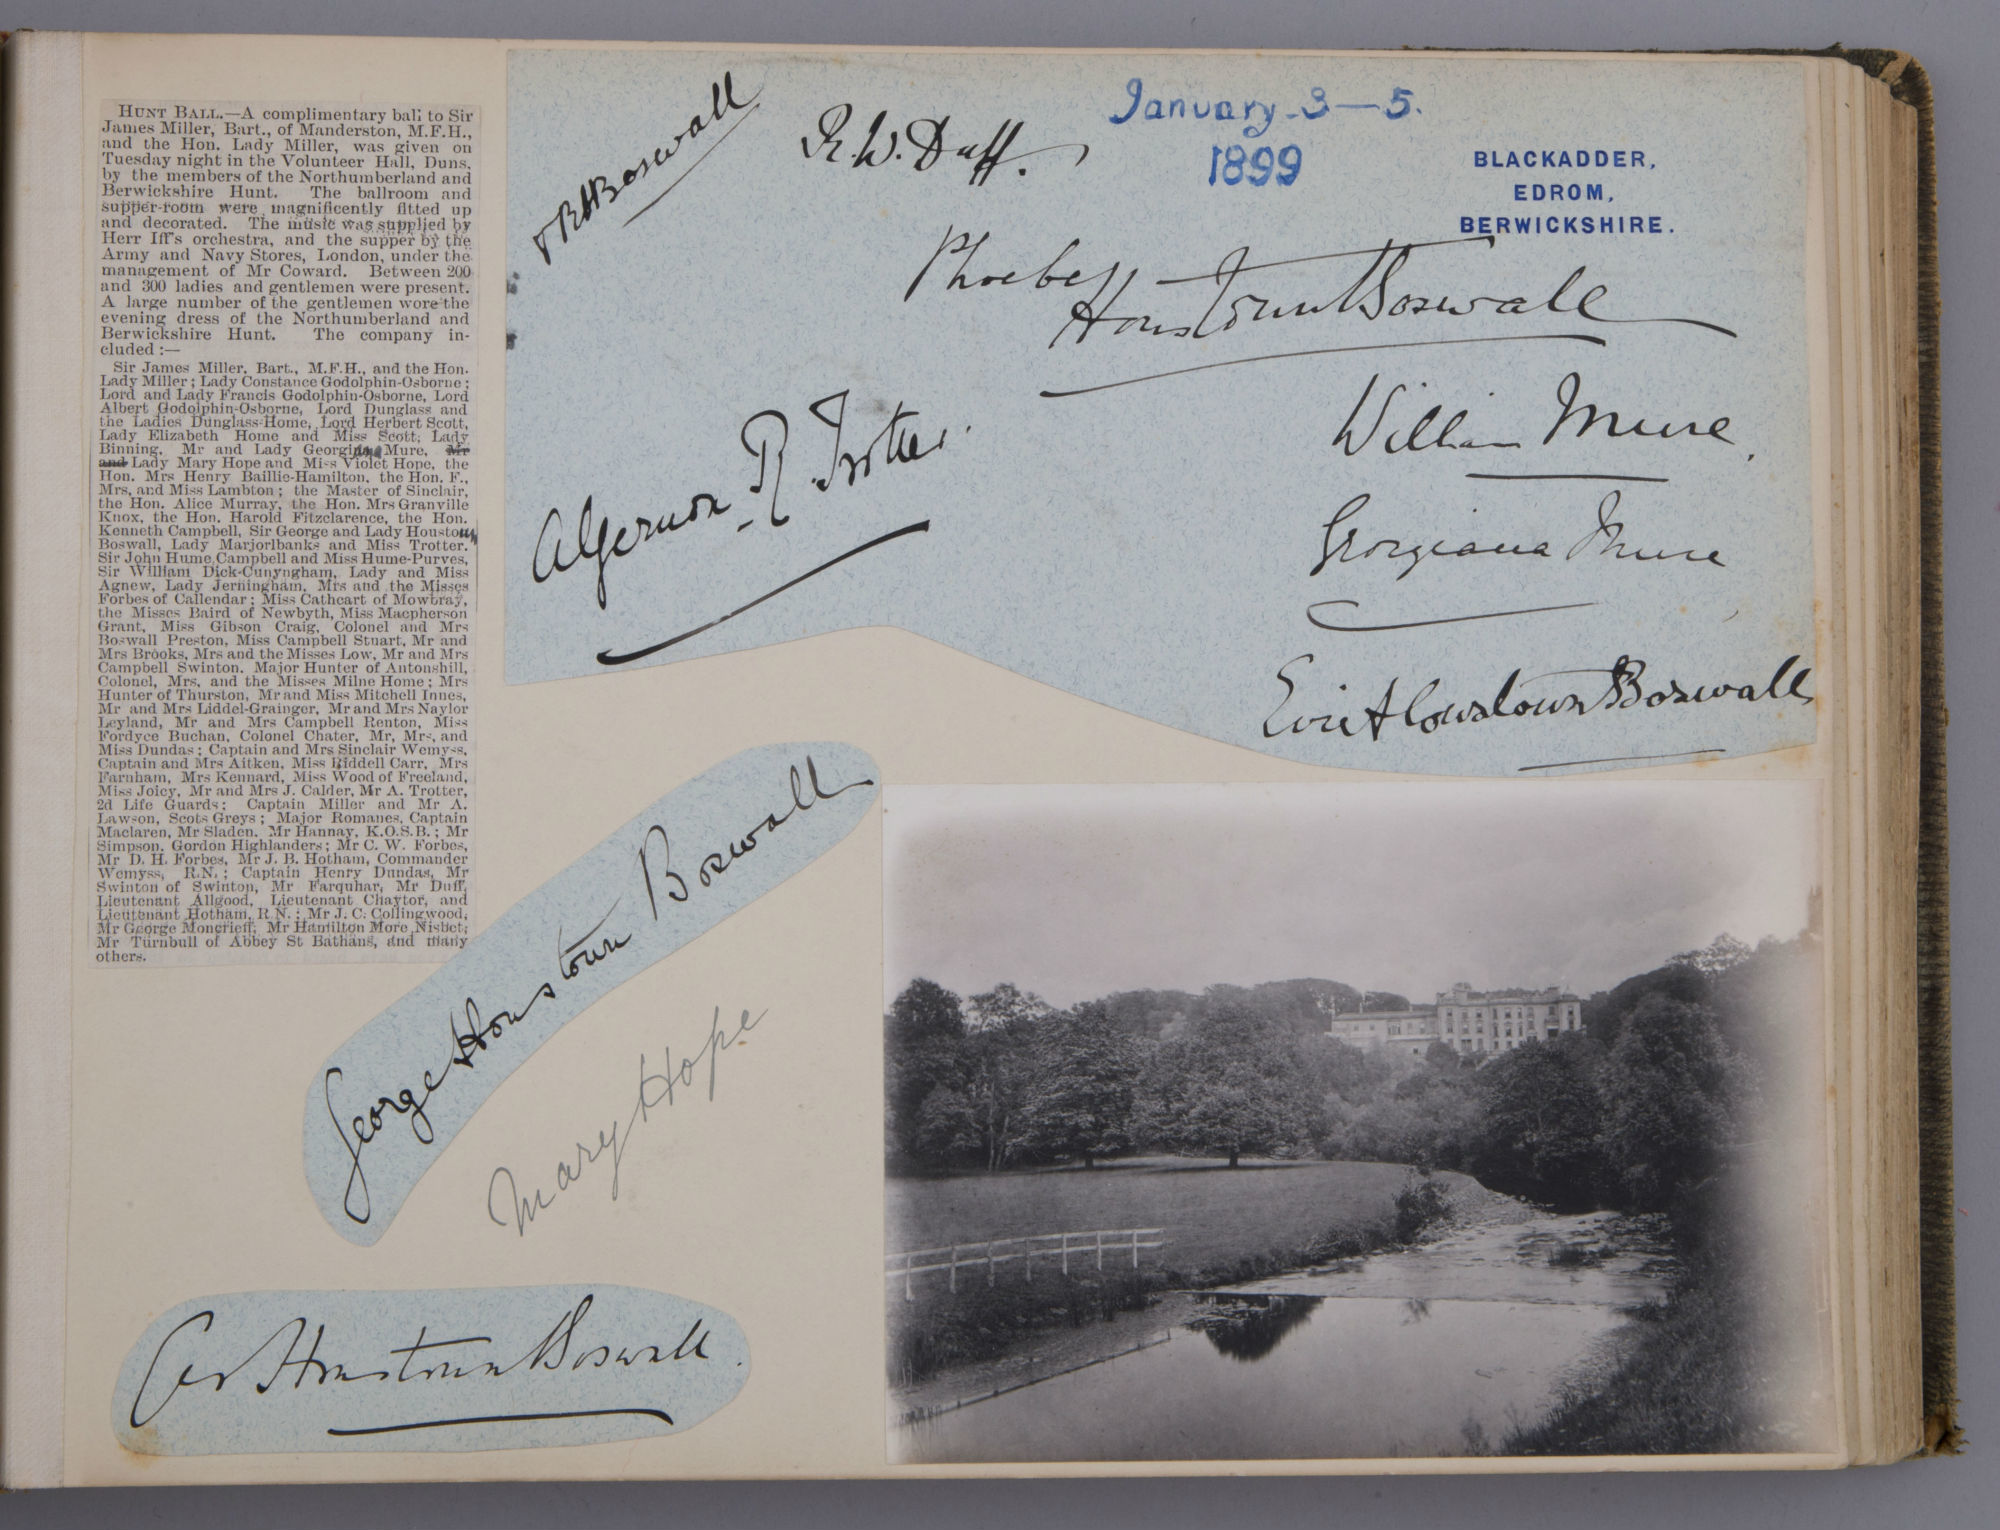 HUNT BALL.—A complimentary ball to Sir
James Miller, Bart., of Manderston, M.F.H.,
and the Hon. Lady Miller, was given on
Tuesday night in the Volunteer Hall, Duns,
by the members of the Northumberland and
Berwickshire Hunt. The ballroom and
supper-room were magnificently fitted up
and decorated. The music was supplied by
Herr Iff's orchestra, and the supper by the
Army and Navy Stores, London, under the
management of Mr Coward. Between 200
and 300 ladies and gentlemen were present.
A large number of the gentlemen wore the
evening dress of the Northumberland and
Berwickshire Hunt. The company in-
cluded :—
Sir James Miller, Bart., M.F.H., and the Hon.
Lady Miller; Lady Constance Godolphin-Osborne;
Lord and Lady Francis Godolphin-Osborne, Lord
Albert Godolphin-Osborne, Lord Dunglass and
the Ladies Dunglass-Home, Lord Herbert Scott,
Lady Elizabeth Home and Miss Scott; Lady
Binning, Mr and Lady Georgiana Mure, Mr
and Lady Mary Hope and Miss Violet Hope, the
Hon. Mrs Henry Baillie-Hamilton, the Hon. F.,
Mrs, and Miss Lambton; the Master of Sinclair,
the Hon. Alice Murray, the Hon. Mrs Granville
Knox, the Hon. Harold Fitzclarence, the Hon.
Kenneth Campbell, Sir George and Lady Houstoun
Boswall, Lady Marjorlbanks and Miss Trotter.
Sir John Hume Campbell and Miss Hume-Purves,
Sir William Dick-Cunyngham, Lady and Miss
Agnew, Lady Jerningham, Mrs and the Misses
Forbes of Callendar; Miss Cathcart of Mowbray,
the Misses Baird of Newbyth, Miss Macpherson
Grant, Miss Gibson Craig, Colonel and Mrs
Boswall Preston, Miss Campbell Stuart, Mr and
Mrs Brooks, Mrs and the Misses Low, Mr and Mrs
Campbell Swinton. Major Hunter of Antonshill,
Colonel, Mrs, and the Misses Milne Home; Mrs
Hunter of Thurston, Mr and Miss Mitchell Innes,
Mr and Mrs Liddel-Grainger, Mr and Mrs Naylor
Leyland, Mr and Mrs Campbell Renton, Miss
Fordyce Buchan, Colonel Chater, Mr, Mrs, and
Miss Dundas; Captain and Mrs Sinclair Wemyss,
Captain and Mrs Aitken, Miss Riddell Carr, Mrs
Farnham, Mrs Kennard, Miss Wood of Freeland,
Miss Joicy, Mr and Mrs J. Calder, Mr A. Trotter,
2d Life Guards; Captain Miller and Mr A.
Lawson, Scots Greys; Major Romanes, Captain
Maclaren, Mr Sladen, Mr Hannay, K.O.S.B.; Mr
Simpson, Gordon Highlanders; Mr C. W. Forbes,
Mr D. H. Forbes, Mr J. B. Hotham, Commander
Wemyss, R.N.; Captain Henry Dundas, Mr
Swinton of Swinton, Mr Farquhar, Mr Duff,
Lieutenant Allgood, Lieutenant Chaytor, and
Lieutenant Hotham, R.N.; Mr J. C. Collingwood,
Mr George Moncrieff, Mr Hamilton More Nisbet;
Mr Turnbull of Abbey St Bathans, and many
others.
Boswall
R. W. Duff.
January 3—5.
1899
BLACKADDER,
EDROM,
BERWICKSHIRE.
Phoebe
Houstoun Boswall
Algernon R. Trotter.
William Mure.
Georgiana Mure
Houstoun Boswall
George Houstoun Boswall
Mary Hope
Houstoun Boswall.